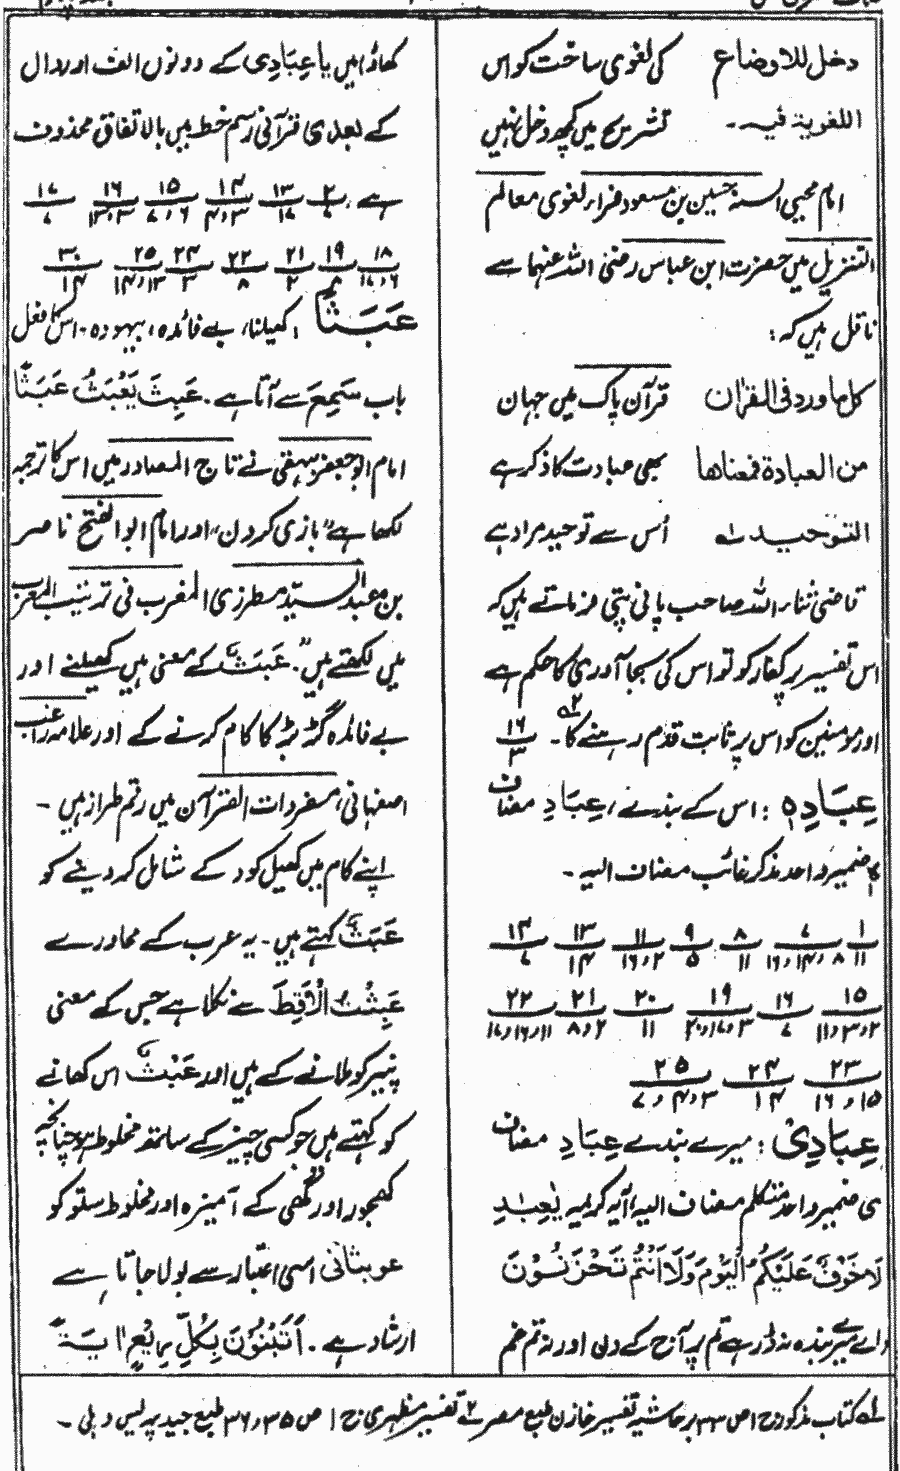 دخل للاوضاع کی لغوی ساخت کو اس
اللغویة فیہ۔ تشریح میں کچھ دخل نہیں
امام محیی السنہ حسین بن مسعود فراء لغوی معالم
التنزیل میں حضرت ابن عباس رضی اللہ عنہما سے
ناقل ہیں کہ:
کل ما ورد فی القرآن قرآن پاک میں جہاں
من العبادة فمعناها بھی عبادت کا ذکر ہے
التوحید لہ اُس سے توحید مراد ہے
قاضی ثناء اللہ صاحب پانی پتی فرماتے ہیں کہ
اس تفسیر پر کفار کو تو اس کی بجا آوری کا حکم ہے
اور مومنین کو اس پر ثابت قدم رہنے کا ۲ہ۔ ۱۶/۳
عِبَادِہٖ : اس کے بندے، عِبَادِ مضاف
ہٖ ضمیر واحد مذکر غائب مضاف الیہ۔
۱/۱۱ ۷/۸، ۱۴، ۱۶ ۸/۱۱ ۹/۵ ۱۱/۲، ۱۶ ۱۳/۱۴ ۱۴/۷
۱۵/۲، ۳، ۱۱ ۱۶/۷ ۱۹/۳، ۱۷، ۲۰ ۲۰/۱۱ ۲۱/۲، ۸ ۲۲/۱۱، ۱۶، ۱۷
۲۳/۱۵، ۱۶ ۲۴/۱۴ ۲۵/۳، ۴، ۷
عِبَادِیْ : میرے بندے عِبَادِ مضاف
ی ضمیر واحد متکلم مضاف الیہ، آیہ کریمہ یٰعِبَادِ
لَا خَوْفٌ عَلَیْکُمُ الْیَوْمَ وَلَا اَنْتُمْ تَحْزَنُوْنَ
(اے میرے بندو نہ ڈر ہے تم پر آج کے دن اور نہ تم غم
کھاؤ) میں یا عِبَادِی کے دونوں الف اور دال
کے بعد ی قرآنی رسم خط میں بالاتفاق محذوف
ہے، ۲/۷ ۱۳/۱۷ ۱۴/۳، ۴ ۱۵/۶، ۷ ۱۶/۳، ۱۳ ۱۷/۷
۱۸/۶، ۱۷ ۱۹/۴ ۲۱/۲ ۲۲/۸ ۲۴/۳ ۲۵/۱۳، ۱۴ ۳۰/۱۴
عَبَثًا : کھیلنا، بے فائدہ، بیہودہ۔ اس کا فعل
باب سَمِعَ سے آتا ہے۔ عَبِثَ یَعْبَثُ عَبَثًا
امام ابوجعفر بیہقی نے تاج المصادر میں اس کا ترجمہ
لکھا ہے "بازی کردن" اور امام ابو الفتح ناصر
بن عبد السیّد مطرزی المغرب فی ترتیب المعرب
میں لکھتے ہیں"۔ عَبَث کے معنی ہیں کھیلنے اور
بے فائدہ گڑبڑ کا کام کرنے کے اور علامہ راغب
اصفہانی، مفردات القرآن میں رقم طراز ہیں۔
اپنے کام میں کھیل کود کے شامل کر دینے کو
عَبَث کہتے ہیں۔ یہ عرب کے محاورے
عَبِثْتُ الْاَقِطَ سے نکلا ہے جس کے معنی
پنیر کو ملانے کے ہیں اور عَبْث اس کھانے
کو کہتے ہیں جو کسی چیز کے ساتھ مخلوط ہو چنانچہ
کھجور اور گھی کے آمیزہ اور مخلوط ستو کو
عوبثانی اسی اعتبار سے بولا جاتا ہے
ارشاد ہے۔ اَتَبْنُوْنَ بِکُلِّ رِیْعٍ اٰیَةً
لہ کتاب مذکور ج ۱ ص ۳۳ بر حاشیہ تفسیر خازن طبع مصر ۲ہ تفسیر مظہری ج ۱ ص ۳۵، ۳۶ طبع جید پریس دہلی۔